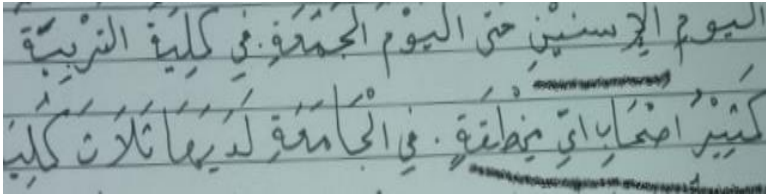 اليوم الإسنين حتى اليوم الجمعة. في كلية التربية
كثير اصحاب اي مخطقة. في الجامعة لديها ثلاث كلية